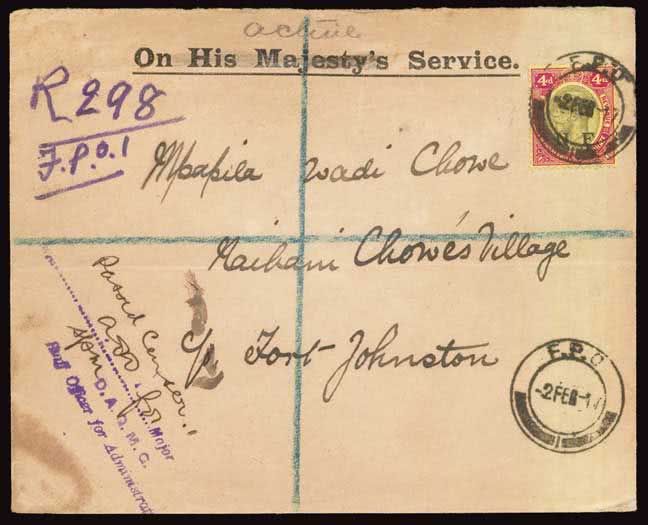 active
On His Majesty's Service.
R 298
F.P.O.1
4d 4d
F.P.O
-2FEB
Mpapila wadi Chowe
Maibani Chowe's Village
c/o Fort-Johnston
Passed Censor.
for
Major
D.A.Q.M.G.
Staff Officer for Administrat
F.P.O
-2FEB-1